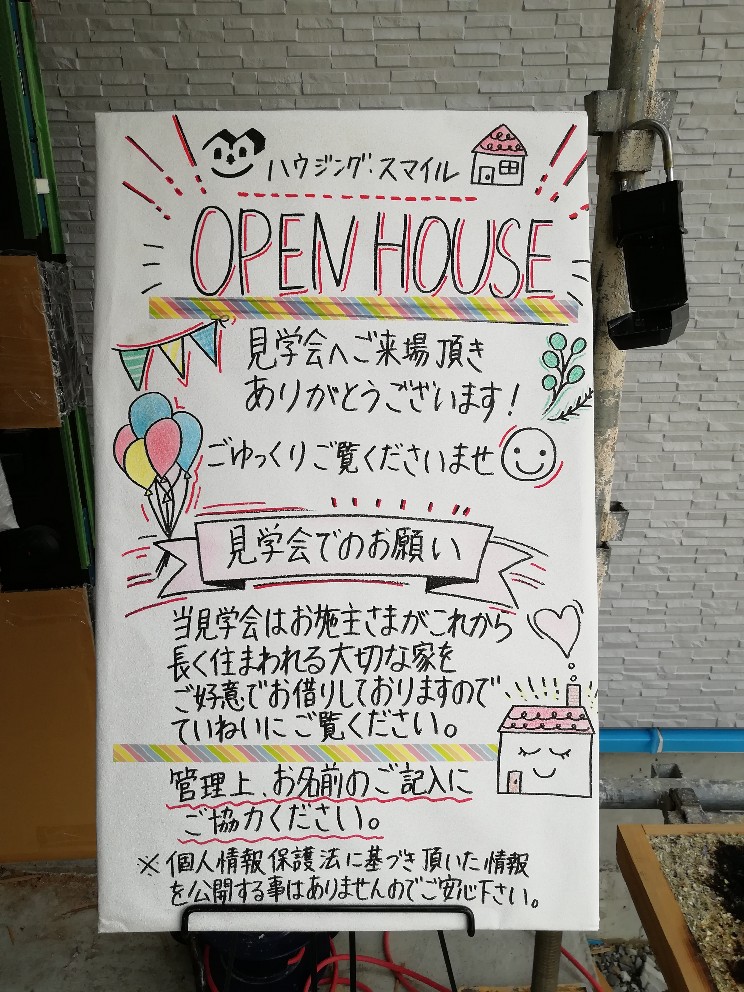 ハウジング・スマイル
OPEN HOUSE
見学会へご来場頂き
ありがとうございます！
ごゆっくりご覧くださいませ
見学会でのお願い
当見学会はお施主さまがこれから
長く住まわれる大切な家を
ご好意でお借りしておりますので
ていねいにご覧ください。
管理上、お名前のご記入に
ご協力ください。
※個人情報保護法に基づき頂いた情報
を公開する事はありませんのでご安心下さい。